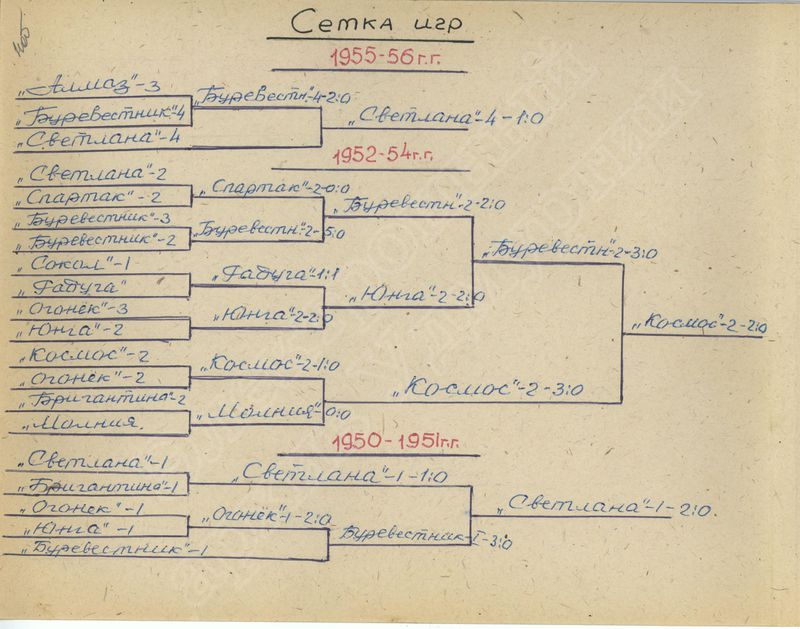 Сетка игр
1955-56г.г.
„Алмаз"-3
„Буревестник"-4
„Буревестн."-4-2:0
„Светлана"-4
„Светлана"-4-1:0
1952-54г.г.
„Светлана"-2
„Спартак"-2
„Спартак"-2-0:0
„Буревестник"-3
„Буревестник"-2
„Буревестн."-2-5:0
„Буревестн."-2-2:0
„Сокол"-1
„Радуга"
„Радуга"-1:1
„Огонёк"-3
„Юнга"-2
„Юнга"-2-2:0
„Юнга"-2-2:0
„Буревестн"-2-3:0
„Космос"-2
„Огонёк"-2
„Космос"-2-1:0
„Бригантина"-2
„Молния.
„Молния"-0:0
„Космос"-2-3:0
„Космос"-2-2:0
1950-1951г.г.
„Светлана"-1
„Бригантина"-1
„Светлана"-1-1:0
„Огонёк"-1
„Юнга"-1
„Огонёк"-1-2:0
„Буревестник"-1
Буревестник-I-3:0
„Светлана"-1-2:0.